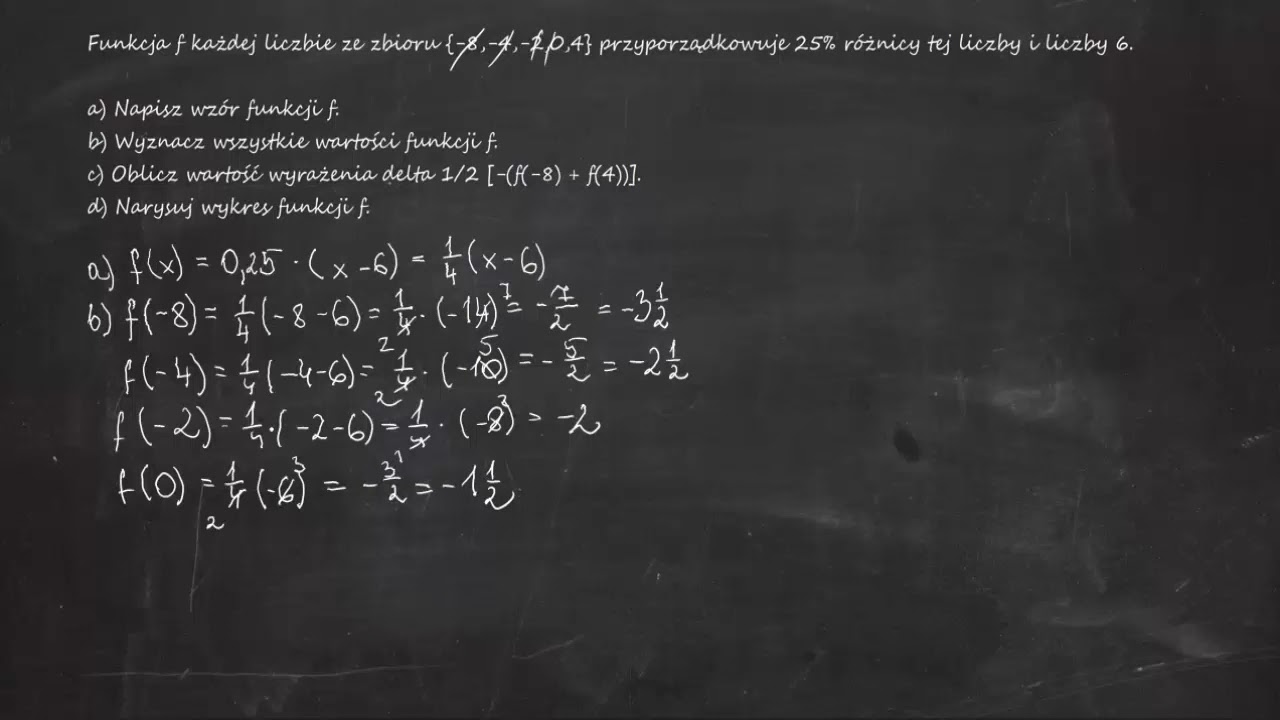 Funkcja f każdej liczbie ze zbioru {-8,-4,-2,0,4} przyporządkowuje 25% różnicy tej liczby i liczby 6.
a) Napisz wzór funkcji f.
b) Wyznacz wszystkie wartości funkcji f.
c) Oblicz wartość wyrażenia delta 1/2 [-(f(-8) + f(4))].
d) Narysuj wykres funkcji f.
a) f(x) = 0,25 · (x - 6) = 1/4 (x - 6)
b) f(-8) = 1/4 (-8 - 6) = 1/4 2 · (-14) 7 = - 7/2 = -3 1/2
f(-4) = 1/4 (-4 - 6) = 1/4 2 · (-10) 5 = - 5/2 = -2 1/2
f(-2) = 1/4 · (-2 - 6) = 1/4 1 · (-8) 2 = -2
f(0) = 1/4 2 (-6) 3 = - 3/2 = -1 1/2